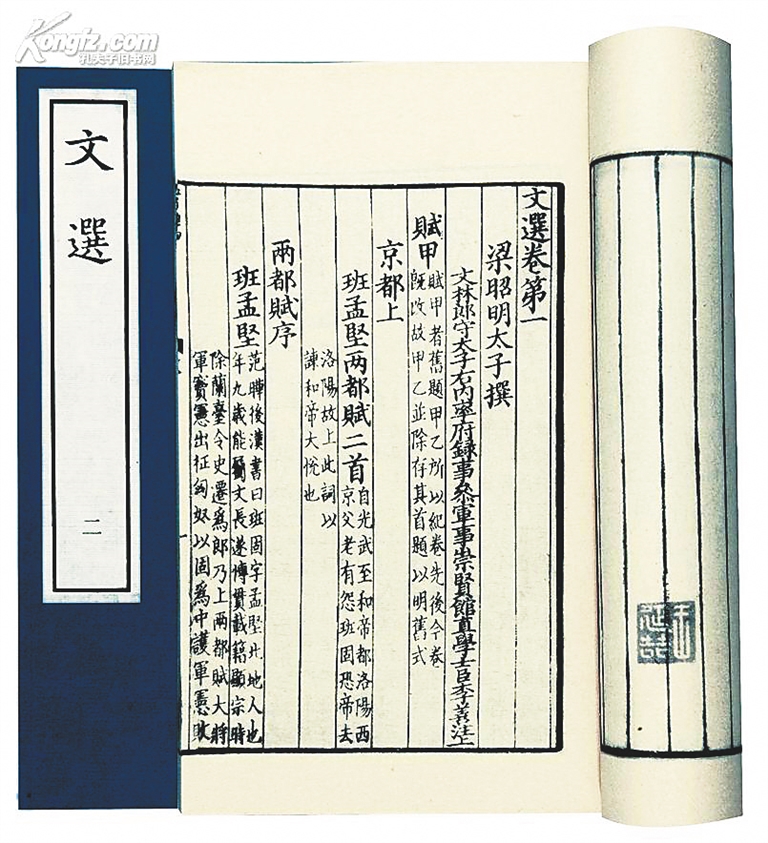 Kongfz.com
孔夫子旧书网
文選
二
文選卷第一
梁昭明太子撰
文林郎守太子右内率府録事叅軍事崇賢館直學士臣李善注上
賦甲
賦甲者舊題甲乙所以紀卷先後今卷
旣改故甲乙並除存其首題以明舊式
京都上
班孟堅兩都賦二首
自光武至和帝都洛陽西
京父老有怨班固恐帝去
洛陽故上此詞以
諫和帝大悦也
兩都賦序
班孟堅
范曄後漢書曰班固字孟堅北地人也
年九歳能屬文長遂博貫載籍顯宗時
除蘭臺令史遷爲郎乃上兩都賦大將
軍竇憲出征匈奴以固爲中護軍憲敗